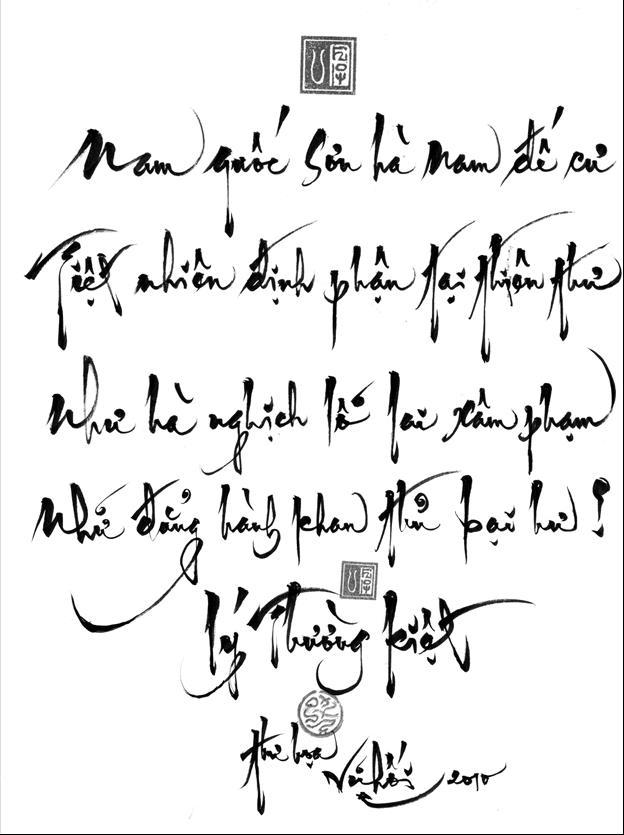 Nam quốc Sơn hà Nam đế cư
Tiệt nhiên định phận tại thiên thư
Như hà nghịch lỗ lai xâm phạm
Nhữ đẳng hành khan thủ bại hư !
Lý Thường Kiệt
thư họa
2010